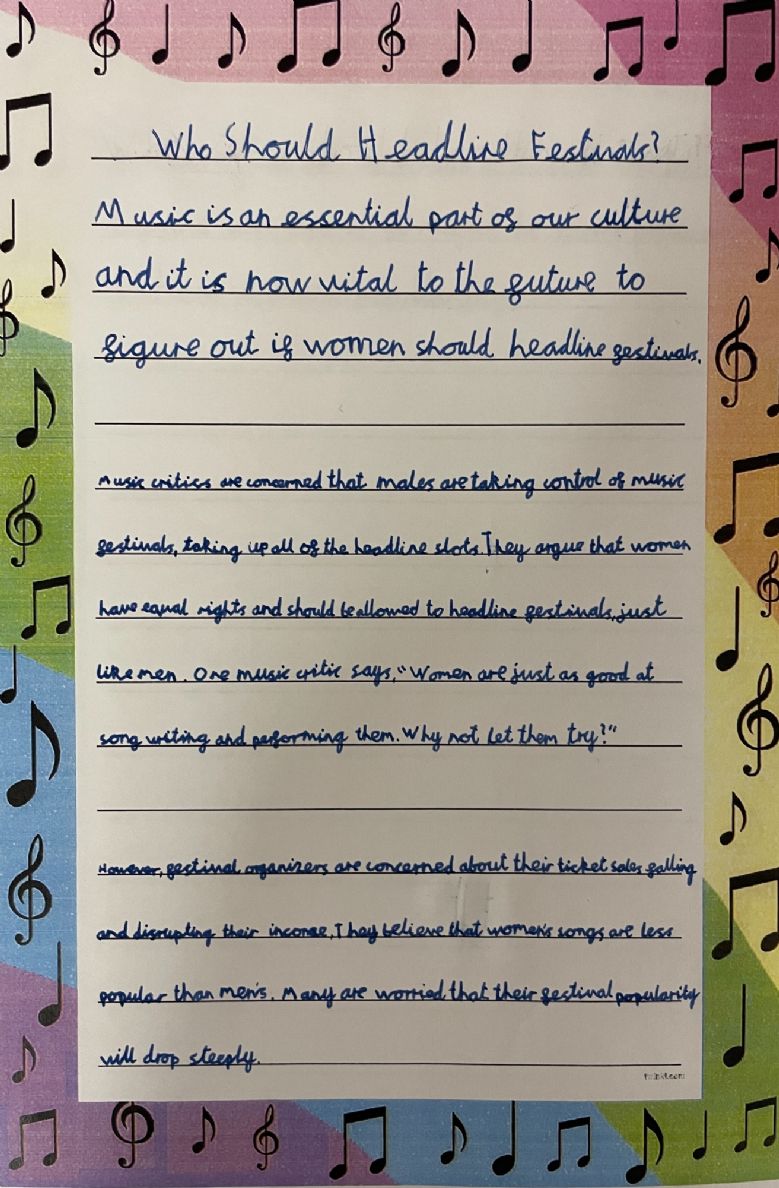 Who Should Headline Festivals?
Music is an essential part of our culture
and it is now vital to the future to
figure out if women should headline festivals.
Music critics are concerned that males are taking control of music
festivals, taking up all of the headline slots. They argue that women
have equal rights and should be allowed to headline festivals, just
like men. One music critic says, "Women are just as good at
song writing and performing them. Why not let them try?"
However, festival organizers are concerned about their ticket sales falling
and disrupting their income. They believe that women's songs are less
popular than men's. Many are worried that their festival popularity
will drop steeply.